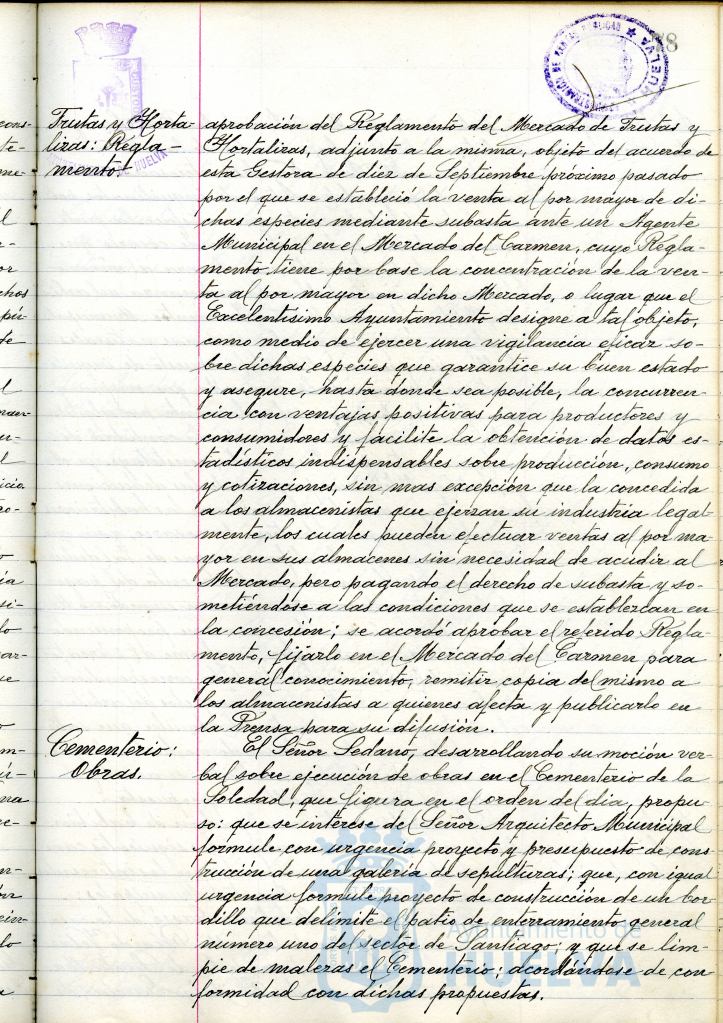 78
Frutas y Horta-
lizas: Regla-
mento.
aprobación del Reglamento del Mercado de Frutas y
Hortalizas, adjunto a la misma, objeto del acuerdo de
esta Gestora de diez de Septiembre próximo pasado
por el que se estableció la venta al por mayor de di-
chas especies mediante subasta ante un Agente
Municipal en el Mercado del Carmen, cuyo Regla-
mento tiene por base la concentración de la ven-
ta al por mayor en dicho Mercado, o lugar que el
Excelentísimo Ayuntamiento designe a tal objeto,
como medio de ejercer una vigilancia eficaz so-
bre dichas especies que garantice su buen estado
y asegure, hasta donde sea posible, la concurren-
cia con ventajas positivas para productores y
consumidores y facilite la obtención de datos es-
tadísticos indispensables sobre producción, consumo
y cotizaciones, sin mas excepción que la concedida
a los almacenistas que ejerzan su industria legal-
mente, los cuales pueden efectuar ventas al por ma-
yor en sus almacenes sin necesidad de acudir al
Mercado, pero pagando el derecho de subasta y so-
metiéndose a las condiciones que se establezcan en
la concesión; se acordó aprobar el referido Regla-
mento, fijarlo en el Mercado del Carmen para
general conocimiento, remitir copia del mismo a
los almacenistas a quienes afecta y publicarlo en
la Prensa para su difusión.
Cementerio:
Obras.
El Señor Sedano, desarrollando su moción ver-
bal sobre ejecución de obras en el Cementerio de la
Soledad, que figura en el orden del dia, propu-
so: que se interese del Señor Arquitecto Municipal
formule con urgencia proyecto y presupuesto de cons-
trucción de una galería de sepulturas; que, con igual
urgencia formule proyecto de construcción de un bor-
dillo que delimite el patio de enterramiento general
número uno del sector de Santiago; y que se lim-
pie de malezas el Cementerio; acordándose de con-
formidad con dichas propuestas.
Ayuntamiento de
HUELVA